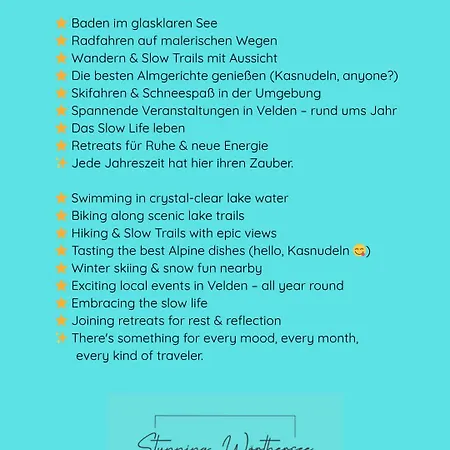 🌟 Baden im glasklaren See
🌟 Radfahren auf malerischen Wegen
🌟 Wandern & Slow Trails mit Aussicht
🌟 Die besten Almgerichte genießen (Kasnudeln, anyone?)
🌟 Skifahren & Schneespaß in der Umgebung
🌟 Spannende Veranstaltungen in Velden – rund ums Jahr
🌟 Das Slow Life leben
🌟 Retreats für Ruhe & neue Energie
✨ Jede Jahreszeit hat hier ihren Zauber.
🌟 Swimming in crystal-clear lake water
🌟 Biking along scenic lake trails
🌟 Hiking & Slow Trails with epic views
🌟 Tasting the best Alpine dishes (hello, Kasnudeln 😋)
🌟 Winter skiing & snow fun nearby
🌟 Exciting local events in Velden – all year round
🌟 Embracing the slow life
🌟 Joining retreats for rest & reflection
✨ There's something for every mood, every month,
every kind of traveler.
Stunning Wörthersee